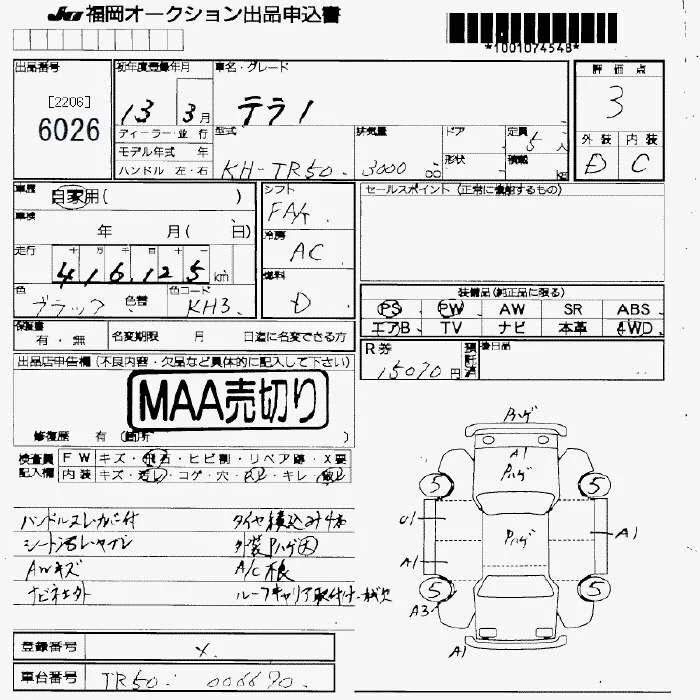 JU 福岡オークション出品申込書
*1001074548*
出品番号
[2206]
6026
初年度登録年月
13 3月
車名・グレード
テラノ
評価点
3
ディーラー・並行
モデル年式 年
ハンドル 左・右
型式
KH-TR50
排気量
3000 cc
ドア
形状
定員
5人
積載
kg
外装 内装
D C
車歴
自家用( )
車検
年 月( 日)
走行
十 万 千 百 十
416,125 km
色
ブラック 色替
色コード
KH3
シフト
FA/T
冷房
AC
燃料
D
セールスポイント (正常に機能するもの)
装備品(純正品に限る)
PS PW AW SR ABS
エアB TV ナビ 本革 4WD
保証書
有・無
名変期限 月 日迄に名変できる方
R券
15070円
預託済
後日品
出品店申告欄 (不良内容・欠品など具体的に記入して下さい)
MAA売切り
修復歴 有 (箇所 )
検査員記入欄
FW キズ・飛石・ヒビ割・リペア跡・X要
内装 キズ・汚レ・コゲ・穴・スレ・キレ
ハンドルスレカバー付
シート汚レ
AWキズ
タイヤ積込み4本
外装Pハゲ大
A/C
ルーフキャリア取付
登録番号
X
車台番号
TR50 006690
Pハゲ
A1
Pハゲ
5 5
U1
Pハゲ
A1
A1
5 5
A3
A1